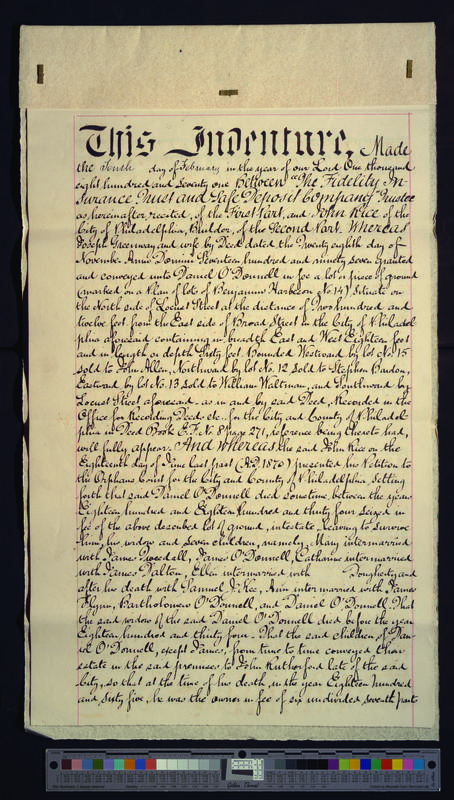 This Indenture, Made
the Tenth day of February in the year of our Lord One thousand
eight hundred and seventy one Between "The Fidelity In
surance Trust and Safe Deposit Company" Trustee
as hereinafter recited, of the First Part, and John Rice of the
City of Philadelphia, Builder, of the Second Part. Whereas
Joseph Greenway and wife by Deed dated the Twenty eighth day of
November Anno Domini Seventeen hundred and ninety seven granted
and conveyed unto Daniel O'Donnell in fee a lot or piece of ground
(marked on a Plan of lots of Benjamin Harbeson No 14) Situate on
the North side of Locust Street at the distance of Two hundred and
twelve feet from the East side of Broad Street in the City of Philadel
phia aforesaid containing in breadth East and West Eighteen feet
and in length or depth Sixty feet Bounded Westward by lot No. 15
sold to John Allen, Northward by lot No. 12 sold to Stephen Bardon,
Eastward by lot No. 13 sold to William Waltman, and Southward by
Locust Street aforesaid. as in and by said Deed, Recorded in the
Office for Recording Deeds etc. for the City and County of Philadel
phia in Deed Book E.F. No. 8 page 271, reference being thereto had,
will fully appear. And whereas, the said John Rice on the
Eighteenth day of June last past (A.D. 1870) presented his Petition to
the Orphans Court for the City and County of Philadelphia Setting
forth that said Daniel O'Donnell died sometime between the years
Eighteen hundred and Eighteen hundred and thirty four Seized in
fee of the above described lot of ground, intestate leaving to survive
him, his widow and seven children, namely, Mary intermarried
with James Tweedall, James O'Donnell, Catharine intermarried
with James Dalton, Ellen intermarried with Dougherty and
after his death with Samuel McKee, Ann intermarried with James
Flynn, Bartholomew O'Donnell, and Daniel O'Donnell. That
the said widow of the said Daniel O'Donnell died before the year
Eighteen hundred and thirty four. That the said children of Dan
iel O'Donnell, except James, from time to time conveyed their
estate in the said premises to John Rutherford late of the said
City, so that at the time of his death, in the year Eighteen hundred
and sixty five, he was the owner in fee of six undivided seventh parts